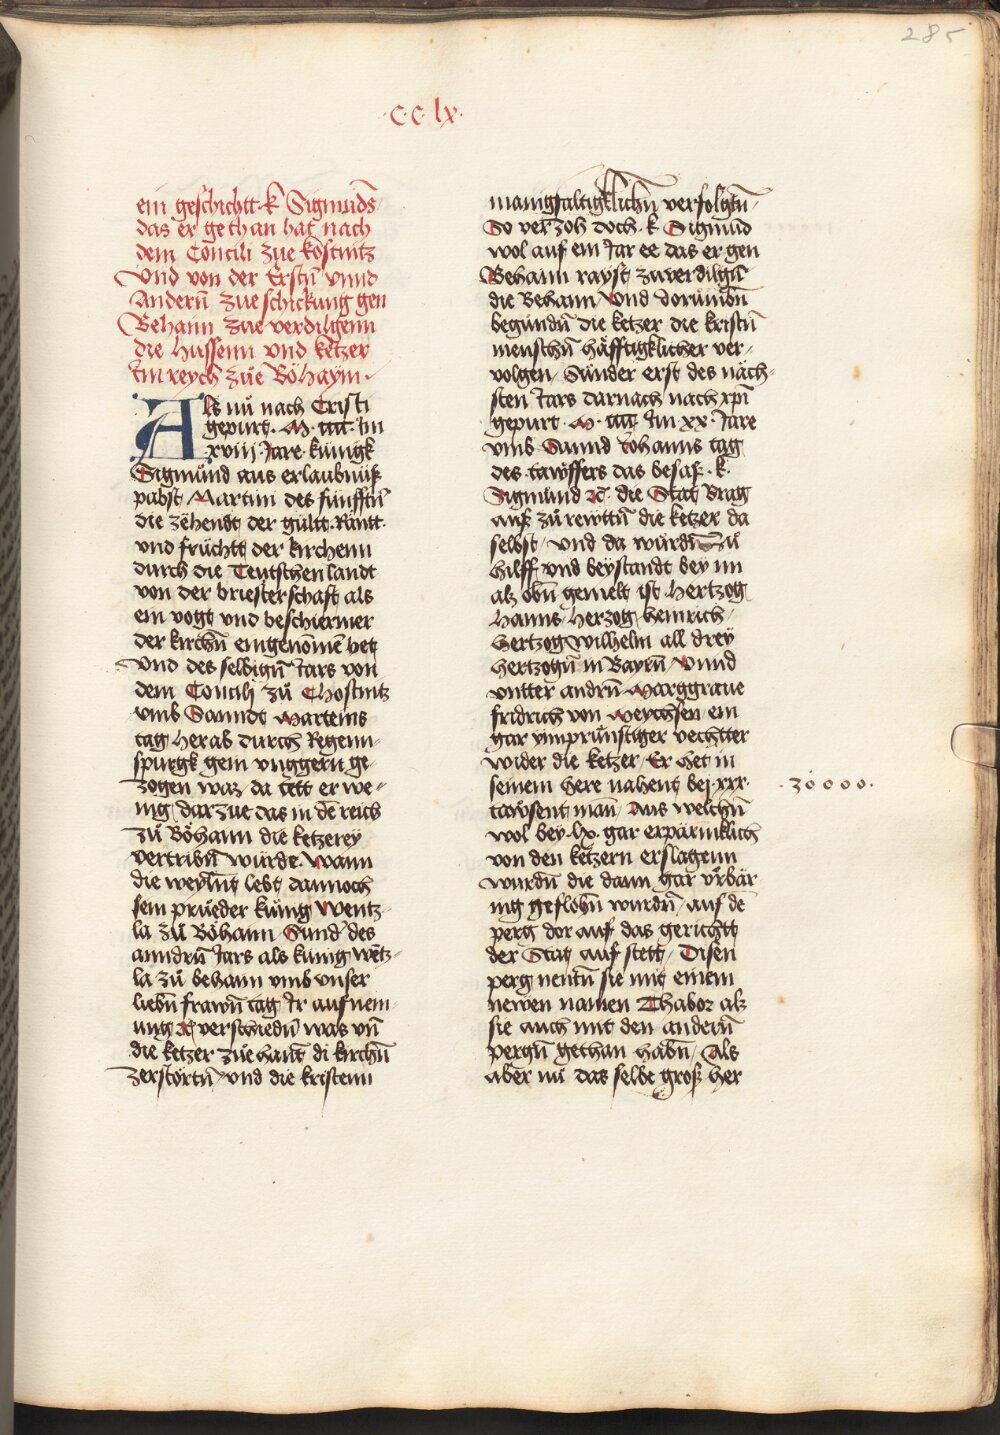 285
·c·c·lx·
ein geschichtt·k̄ Sigmūds
das er gethan hat nach
dem Concili zue kostnitz
Vnd von der Erstn̄ vnnd
Andern̄ zue schickung gen
Behann zue verdilgenn
die Hussenn vnd ketzer
Im reych zue Böhaym·
Als nŭ nach Cristi
gepurt· M· cccc· Im
xviij· Jare· künigk
Sigmŭnd aus erlaubnŭß
pabst Martini des fŭnfftn̄
die zehendt der gŭltt·Rāntt·
vnd frŭchtt der kirchenn
durch die Teutschen landt
von der briesterschaft als
ein vogt vnd beschiermer
der kirchn̄ eingenōmē het
Vnd des selbign̄ Jars von
dem Concilj zŭ Chostnitz
vmb Sanndt Marteins
tag herab durch Regenn-
spurgk gein vnggern ge-
zogen waz da tett er we-
nig dar zue das in dē reich
zŭ Böhann die ketzerey
vertribn̄ wŭrde· Wann
die weylnt lebt dannoch
sein prŭeder kŭnig Wentz-
la zŭ Böhann Sund des
anndrn̄ Jars als kŭnig wētz-
la zŭ behann vmb vnser
liebn̄ frawn̄ tag Ir aufnem-
ung ꝛc verschiedn̄ was vn̄
die ketzer zŭe hant di kirchn̄
zerstörtn̄ vnd die kristenn
manigfaltigklichn̄ verfolgtn̄
So verzoh doch· k· Sigmūd
wol auf ein Jar ee das er gen
Behann rayst zuuerdilgn̄
die Behann Vnd dorŭmbn̄
begŭndn̄ die ketzer die kristn̄
menschn̄ häfftigklicher ver-
volgen Sŭnder erst des näch-
sten Jars darnach nach xp̄i
gepurt· M· cccc Im xx· Jare
vmb Sannd Johanns tag
des tawffers das besaß· k·
Sigmŭnd ꝛc· die Stat Brag
auß zŭ rewttn̄ die ketzer da
selbst vnd da wurdn̄ Zŭ
hilff vnd beystandt bey im
alz obn̄ gemelt ist Hertzog
Hanns Herzog heinrich
Hertzog Wilhelm all drey
hertzogn̄ in Bayrn̄ Vnnd
vntter andrn̄ Marggraue
fridrich von Meychsen ein
gar ynnprŭnstiger vechtter
wider die ketzer Er het in
seinem here nahent bej·xxx·
tawsent man Aus welchn̄
·30000·
wol bey·lx· gar erpärmklich
von den ketzern erslagenn
wurdn̄ die dann gar vrbär
nig geflohn̄ wurdn̄ auf dē
perg dor auf das gerichtt
der Stat auf stett Disen
perg nentn̄ sie mit einem
newen namen Thabor alz
sie auch mit den andern̄
pergn̄ gethan habn̄ Als
aber nŭ das selbe groß her